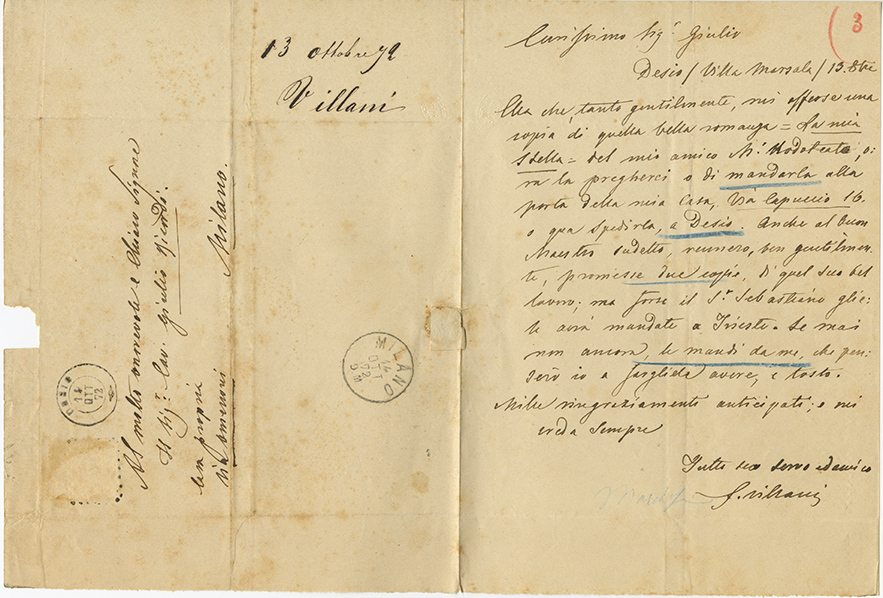 13 Ottobre 72
Villani
Al molto onorevole e Chiaro Signore
Il Sigr. Cav. Giulio Ricordi
sue proprie
Via
Milano.
Desio
14
OTT
72
MILANO
14
OTT
72
3
Carissimo Sigr. Giulio
Desio / Villa Marsala / 13. 8bre
Ella che, tanto gentilmente, mi offerse una
copia di quella bella romanza = La mia
Stella = del mio amico Mr. o-
ra la pregherei o di mandarla alla
porta della mia Casa, Via Capuccio 16.
o qua spedirla, a Desio. Anche al buon
Maestro sudetto, ben gentilmen-
te, promesse due copie, di quel suo bel
lavoro; ma forse il Sr. Sebastiano glie-
le avrà mandate a Trieste. Se mai
non ancora, le mandi da me, che pen-
serò io a fargliele avere, e tosto.
Mille ringraziamenti anticipati; e mi
creda sempre
Tutto suo servo ed amico
F. Villani